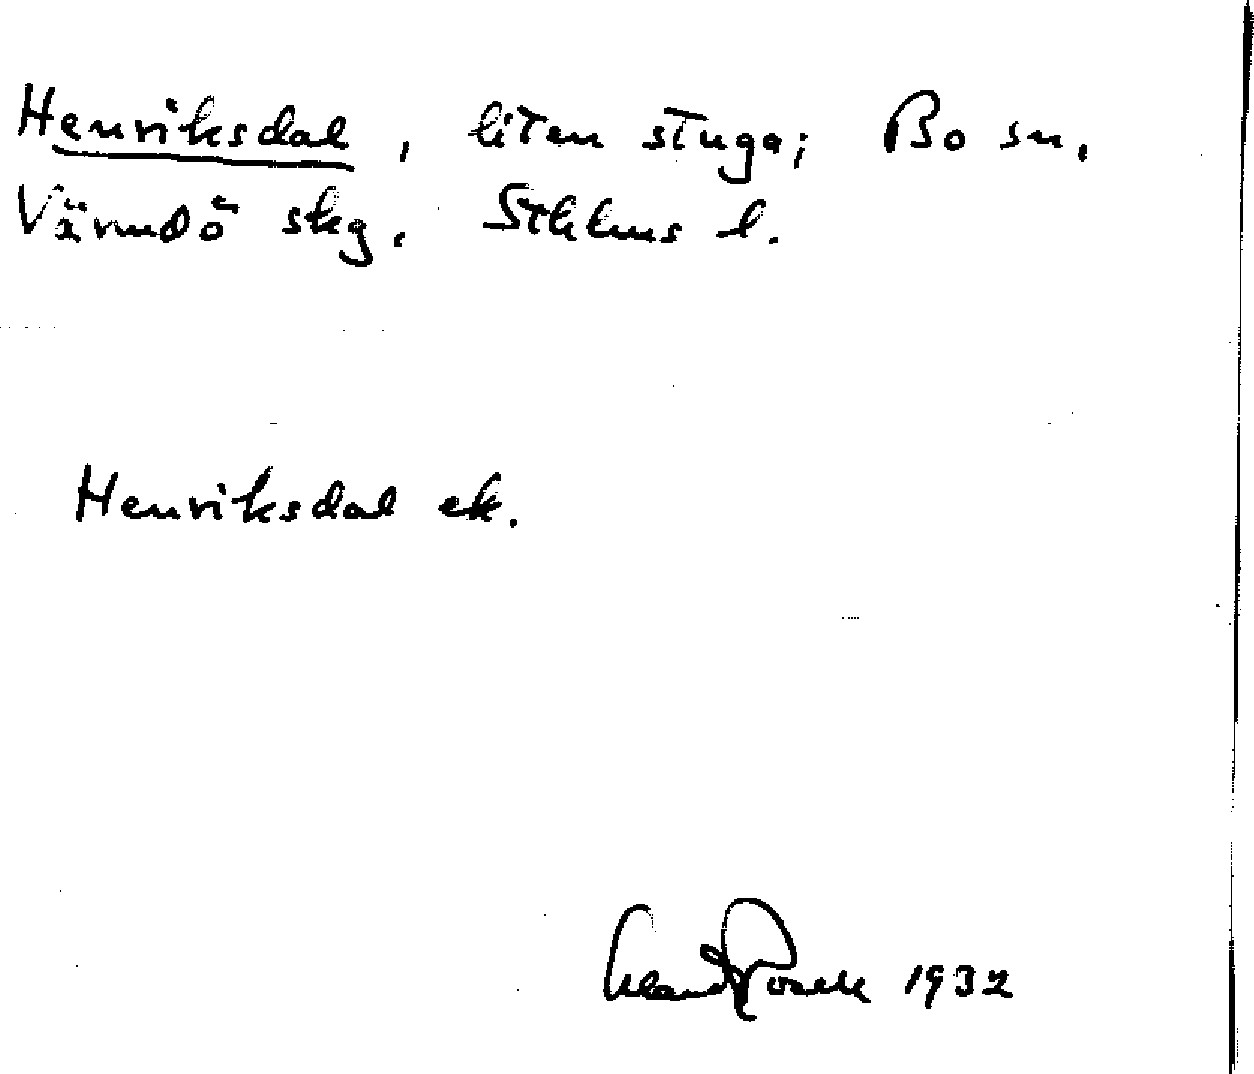 Henriksdal, liten stuga; Bo sn.
Värmdö skg. Sthlms l.
Henriksdal ek.
1932